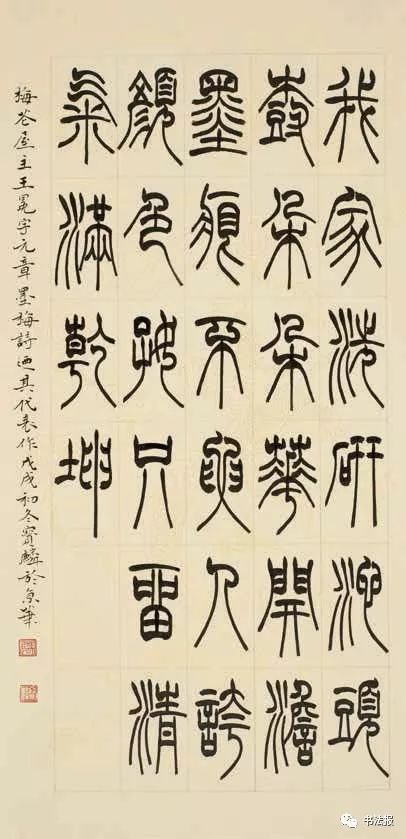 我家洗研池頭
樹朵朵華開澹
墨痕不要人誇
顏色好只留清
氣滿乾坤
梅花屋主王冕字元章墨梅詩迺其代表作戊戌初冬寶麟於京華
书法报